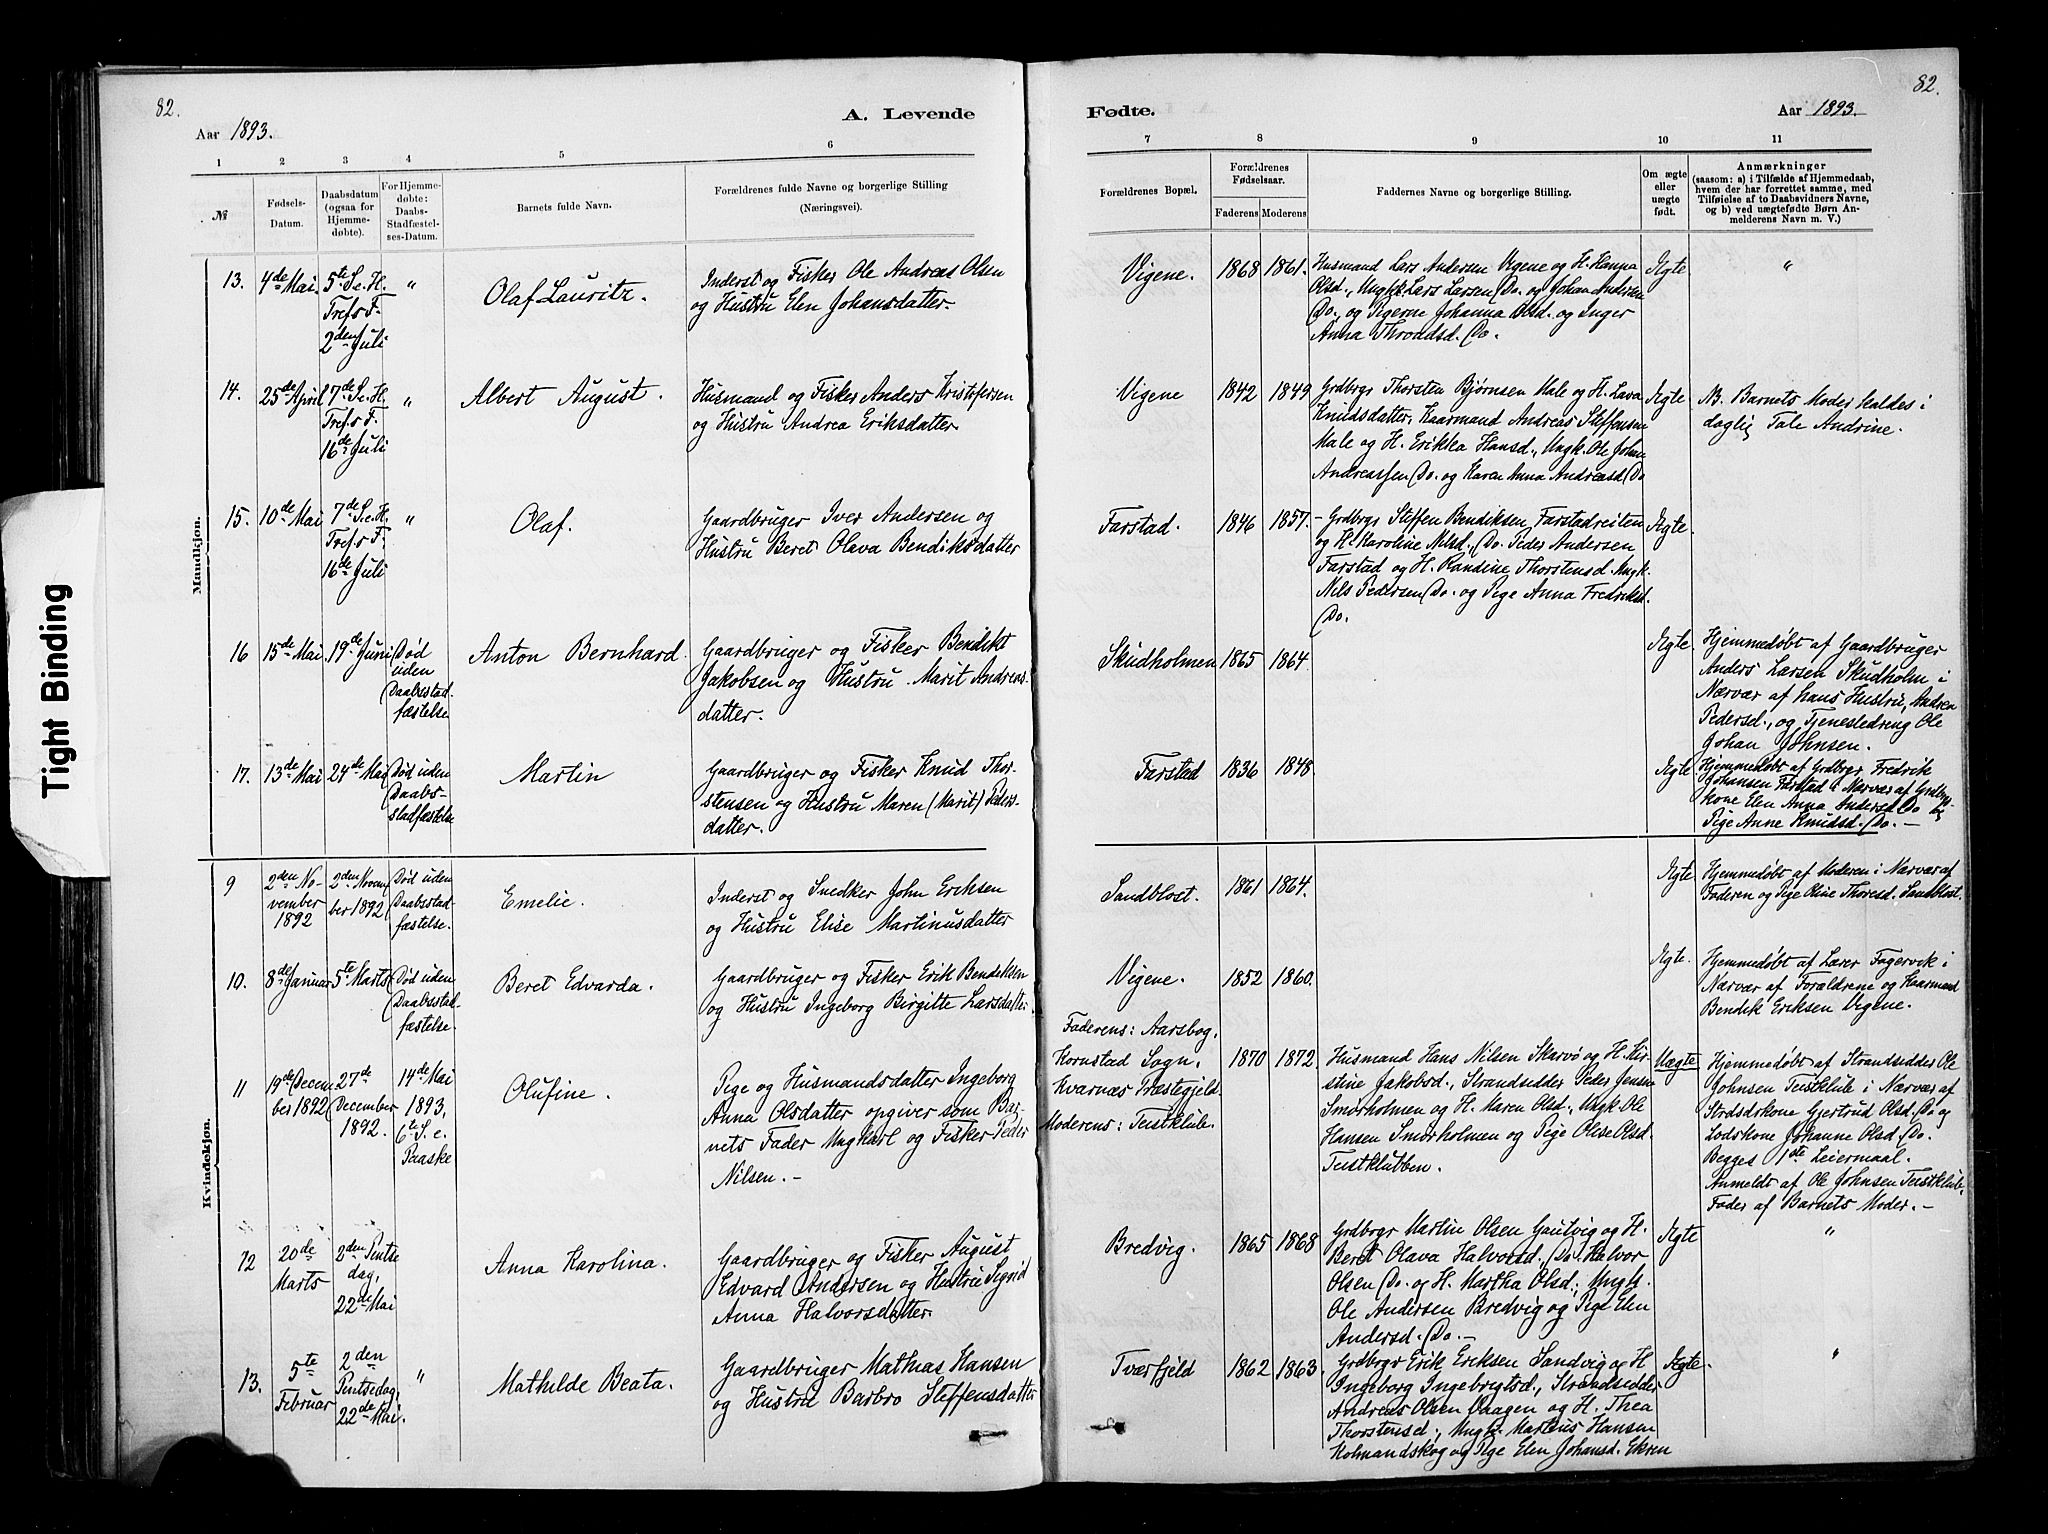 82.
82.
A. Levende
Fødte.
Aar 1893.
Aar 1893.
1 2 3 4 5 6
7 8 9 10 11
№
Fødsels-
Datum.
Daabsdatum
(ogsaa for
Hjemme-
døbte).
For Hjemme-
døbte:
Daabs-
Stadfæstel-
ses-Datum.
Barnets fulde Navn.
Forældrenes fulde Navne og borgerlige Stilling
(Næringsvei).
Forældrenes Bopæl.
Forældrenes
Fødselsaar.
Faderens Moderens
Faddernes Navne og borgerlige Stilling.
Om ægte
eller
uægte
født.
Anmærkninger
(saasom: a) i Tilfælde af Hjemmedaab,
hvem der har forrettet samme, med
Tilføielse af to Daabsvidners Navne,
og b) ved uægtefødte Børn An-
melderens Navn m. V.)
Mandkjøn.
13.
4de Mai.
5te S. e. H.
Tref. s F.
2den Juli
"
Olaf Lauritz.
Inderst og Fisker Ole Andreas Olsen
og Hustru Elen Johansdatter.
Vigene.
1868
1861.
Husmand Lars Andersen Vigene og H. Hanna
Olsd., Ungk. Lars Larsen Do. og Johan Andersen
Do., og Pigerne Johanna Olsd. og Inger
Anna Throndsd. Do.
Ægte
"
14.
25de April
7de S. e. H.
Tref. s F.
16de Juli
"
Albert August.
Husmand og Fisker Anders Kristofersen
og Hustru Andrea Eriksdatter
Vigene
1842
1849
Grdbrgr Thorsten Bjørnsen Male og H. Lava
Knudsdatter, Kaarmand Andreas Steffensen
Male og H. Erikka Hansd., Ungk. Ole Johan
Andreassen Do. og Karen Anna Andreasd Do
Ægte
NB. Barnets Moder kaldes i
daglig Tale Andrine.
15.
10de Mai
7de S. e. H.
Tref. s F.
16de Juli
"
Olaf.
Gaardbruger Iver Andersen og
Hustru Beret Olava Bendiksdatter
Farstad.
1846
1857.
Grdbrgr Steffen Bendiksen Farstadreiten
og H. Karoline Nilsd., Do. Peder Andersen
Farstad og H. Randine Thorstensd. Ungk.
Nils Pedersen Do. og Pige Anna Fredriksd.
Do.
Ægte
16
15de Mai
19de Juni
Død
uden
Daabsstad-
fæstelse
Anton Bernhard
Gaardbruger og Fisker Bendikt
Jakobsen og Hustru Marit Andreas-
datter.
Skudholmen
1865
1864
Ægte
Hjemmedøbt af Gaardbruger
Anders Larsen Skudholm i
Nærvær af hans Hustru, Andrea
Pedersd., og Tjenestedreng Ole
Johan Johnsen.
17.
13de Mai
24de Mai
Død uden
Daabs-
stadfæstelse
Martin
Gaardbruger og Fisker Knud Thor-
stensen og Hustru Maren (Marit) Peders-
datter.
Farstad
1836
1848
Ægte
Hjemmedøbt af Grdbrgr Fredrik
Johansen Farstad i Nærvær af Grdbrgr-
kone Elen Anna Andersd. Do og
Pige Anne Knudsd. Do. –
Kvindekjøn.
9
2den No-
vember
1892
2den Novem
ber 1892
Død uden
Daabsstad-
fæstelse.
Emelie.
Inderst og Snedker John Eriksen
og Hustru Elise Martinusdatter
Sandblost.
1861
1864.
Ægte
Hjemmedøbt af Moderen i Nærvær af
Faderen og Pige Oline Thoresd. Sandblost.
10.
8de Januar
5te Marts
Død uden
Daabsstad-
fæstelse.
Beret Edvarda.
Gaardbruger og Fisker Erik Bendiksen
og Hustru Ingeborg Birgitte Larsdatter.
Vigene.
1852
1860.
Ægte.
Hjemmedøbt af Lærer Fagervik i
Nærvær af Forældrene og Kaarmand
Bendik Eriksen Vigene.
11
19de Decem
ber 1892
27de
December
1892.
14de Mai
1893,
6te S. e.
Paaske
Olufine.
Pige og Husmandsdatter Ingeborg
Anna Olsdatter opgiver som Bar-
nets Fader Ungkarl og Fisker Peder
Nilsen. –
Faderens: Aarsbog,
Kornstad Sogn,
Kvarnæs Præstegjeld.
Moderens: Teistklub.
1870
1872
Husmand Hans Nilsen Skarvø og H. Kir-
stine Jakobsd., Strandsidder Peder Jensen
Smørholmen og H. Maren Olsd., Ungk. Ole
Hansen Smørholmen og Pige Olise Olsd.
Teistklubben.
Uægte
Hjemmedøbt af Strandsidder Ole
Johnsen Teistklub i Nærvær af
Strdsdrkone Gjertrud Olsd. Do og
Lodskone Johanne Olsd. Do.
Begges 1ste Leiermaal.
Anmeldt af Ole Johnsen Teistklub,
Fader af Barnets Moder. –
12
20de
Marts
2den Pintse
dag,
22de Mai
Anna Karolina.
Gaardbruger og Fisker August
Edvard Andersen og Hustru Sigrid
Anna Halvorsdatter.
Bredvig.
1865
1868
Grdbrgr Martin Olsen Gautvig og H.
Beret Olava Halvorsd., Do. Halvor
Olsen Do. og H. Martha Olsd., Ungk.
Ole Andersen Bredvig og Pige Elen
Andersd. Do. –
Ægte
"
13.
5te
Februar
2den
Pintsedag,
22de Mai.
"
Mathilde Beata.
Gaardbruger Mathias Hansen
og Hustru Barbro Steffensdatter
Tverfjeld
1862
1863.
Grdbrgr Erik Eriksen Sandvig og H
Ingeborg Ingebrigtsd., Strandsidder
Andreas Olsen Vaagen og H. Thea
Thorstensd., Ungk. Martius Hansen
Kolmandskog og Pige Elen Johansd. Ekren
Ægte.
"
Tight Binding